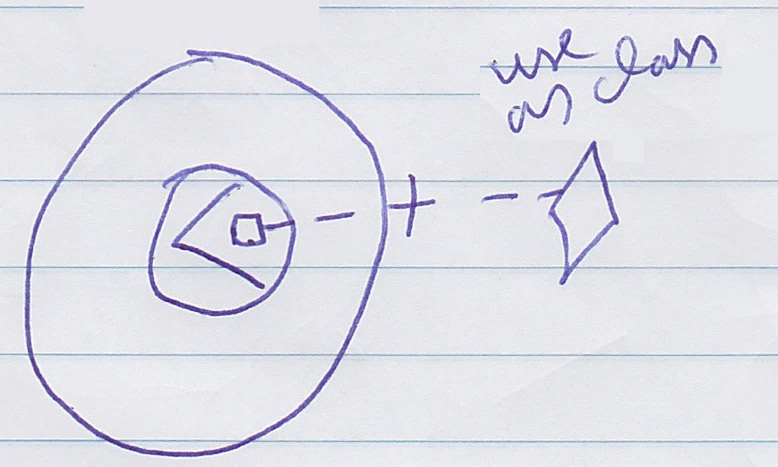 use
as class